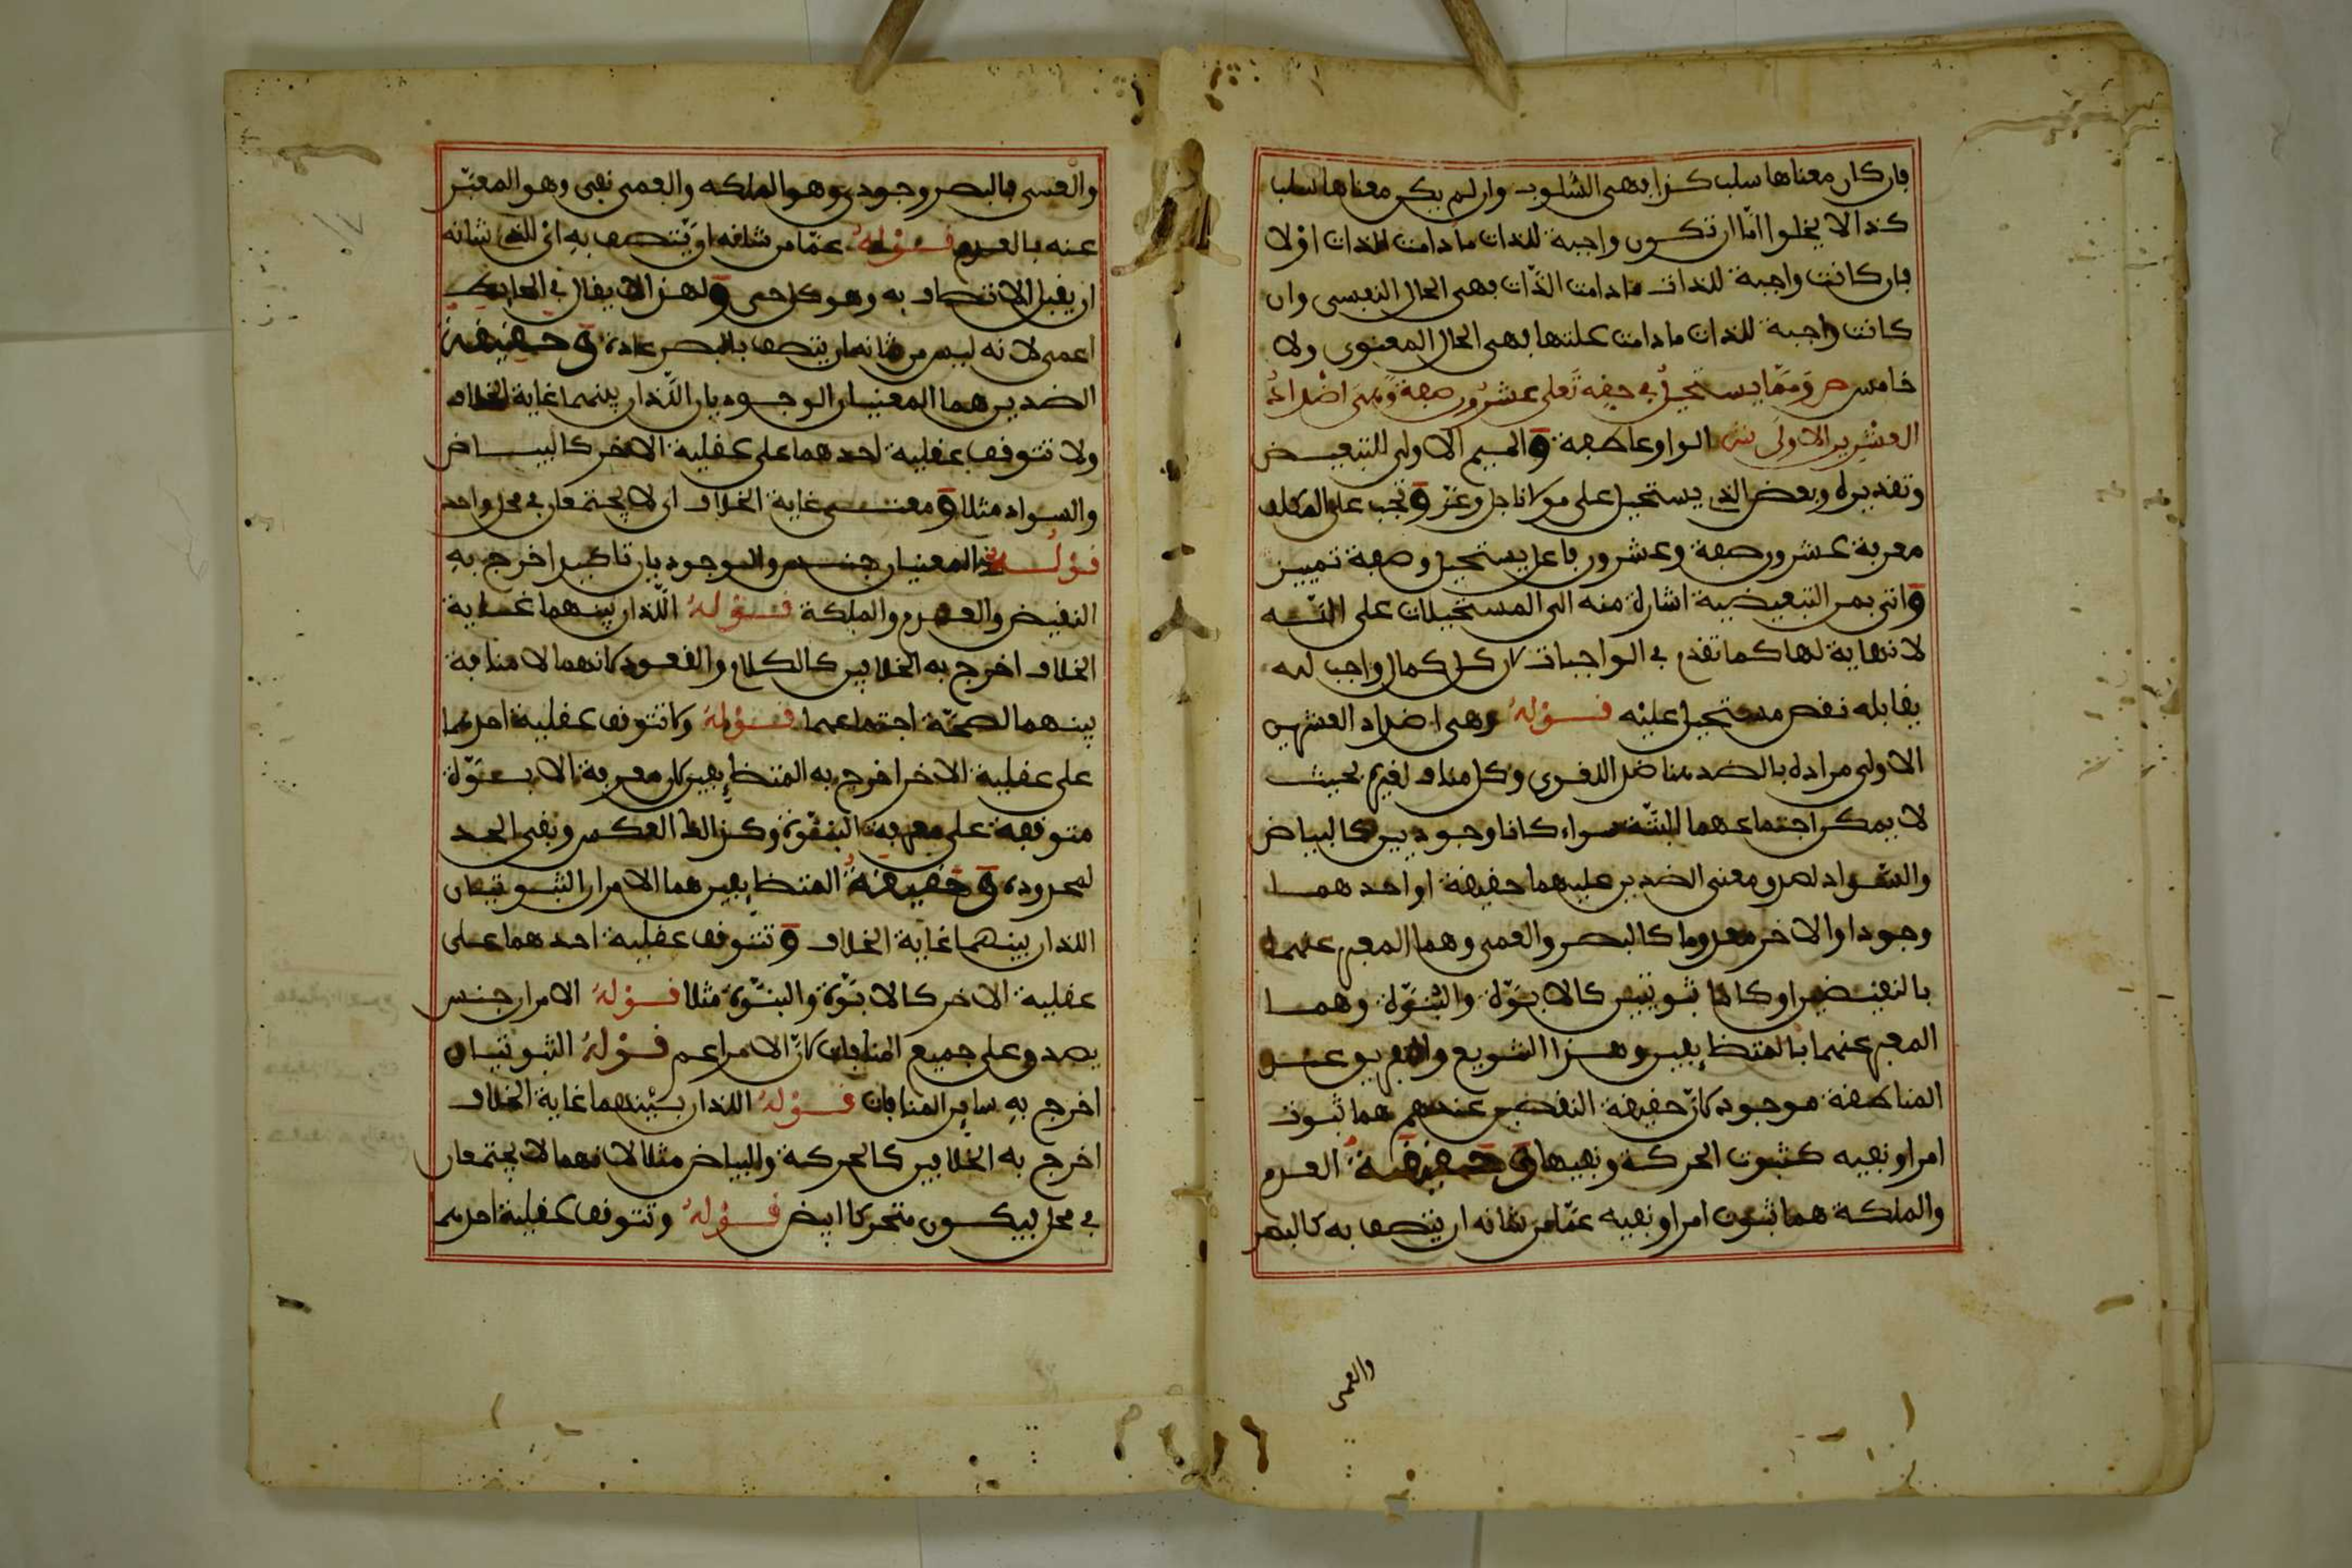 فإن كان معناها سلب كذا فهي السلوب وإن لم يكن معناها سلب
كذا لا يخلوا امّا ان تكون واجبة للذات ما دامت الذات اوْ لا
فإن كانت واجبة للذات ما دامت الذّات فهي الحال النفسي وان
كانت واجبة للذات ما دامت علتها فهي الحال المعنوي ولا
خامس ص وَممّا يستحيلُ في حقِه تَعلى عشرُون صفة وَهيَ اضْدادُ
العشرين الاولَى ش الواو عاطفة وَالميم الاولى للتبعيض
وتقديره وبعض الذي يستحيل على مولانا جل وعز وَتجب على المكلف
معرفة عشرون صفة وعشرون فاعل يستحيل وصفة تمييز
وَاتى بمن التبعيضية اشارة منه الى المستحيلات على الله
لا نهاية لها كما تقدم في الواجبات لان كل كمال واجب له
يقابله نقص مستحيل عليْه قوْلهُ وهي اضداد العشرين
الاولى مراده بالضد هنا ضد اللغوي وكل مناف لغيره بحيث
لا يمكن اجتماعهما البتّة سواء كانا وجوديين كالبياض
والسّواد لصدق معنى الضدين عليهما حقيقة او احدهما
وجودا والاخر معدوما كالبصر والعمى وهما المعبر عنهما
بالنقيضين او كانا ثبوتيين كالابوّة والبُنوّة وهما
المعبر عنهما بالمتضايفين وهذا التنويع والتعريف عنـ
المناطقة موجود لانّ حقيقة النقيضين عندهم هما ثبوت
امر او نفيه كثبوت الحركة ونفيها وَحقيقة العدم
والملكة هما ثبوت امر او نفيه عمّا من شانه ان يتصف به كالبصر
والعمى
والعمى فالبصر وجودي وهو الملكه والعمى نفي وهو المعبّر
عنه بالعدم قوْلهُ عمّا من شانه ان يّتصف به ايْ الذي شانه
ان يقبل الاتصاف به وهو كل حي وَلهذا لا يقال في الحايط
اعمى لانه ليس من شانه ان يتصف بالبصر عادة وَحقيقة
الضدين هما المعنيان الوجوديان اللّذان بينهما غاية الخلاف
ولا تتوقف عقلية احدهما على عقلية الاخر كالبياض
والسواد مثلا وَمعنى غاية الخلاف اى لا يجتمعان في محل واحد
قوْله المعنيان جنس والوجوديان تاكيد اخرج به
النقيض والعدم والملكة قوْلهُ اللّذان بينهما غاية
الخلاف اخرج به الخلافين كالكلام والقعود لانهما لا منافة
بينهما لصحّة اجتماعهما قوْلهُ ولا تتوقف عقلية احدهما
على عقلية الاخر اخرج به المتضايفين لان معرفة الابوّة
متوقفة على معرفة البنوّة وكذالك العكس ونفي الحد
لمحدوده وَحقيقةُ المتضايفين هما الامران الثبوتيان
اللذان بينهما غاية الخلاف وَتتوقف عقلية احدهما على
عقلية الاخر كالابوّة والبنوّة مثلا قوْلهُ الامران جنس
يصدق على جميع المنافات لانّ الامر اعم قوْلهُ الثبوتيان
اخرج به ساير المنافات قوْلهُ اللذان بيْنهما غاية الخلاف
اخرج به الخلافين كالحركة والبياض مثلا لانهما لا يجتمعان
في محل ليكون متحركا ابيض قوْلهُ وتتوقف عقلية احدهما